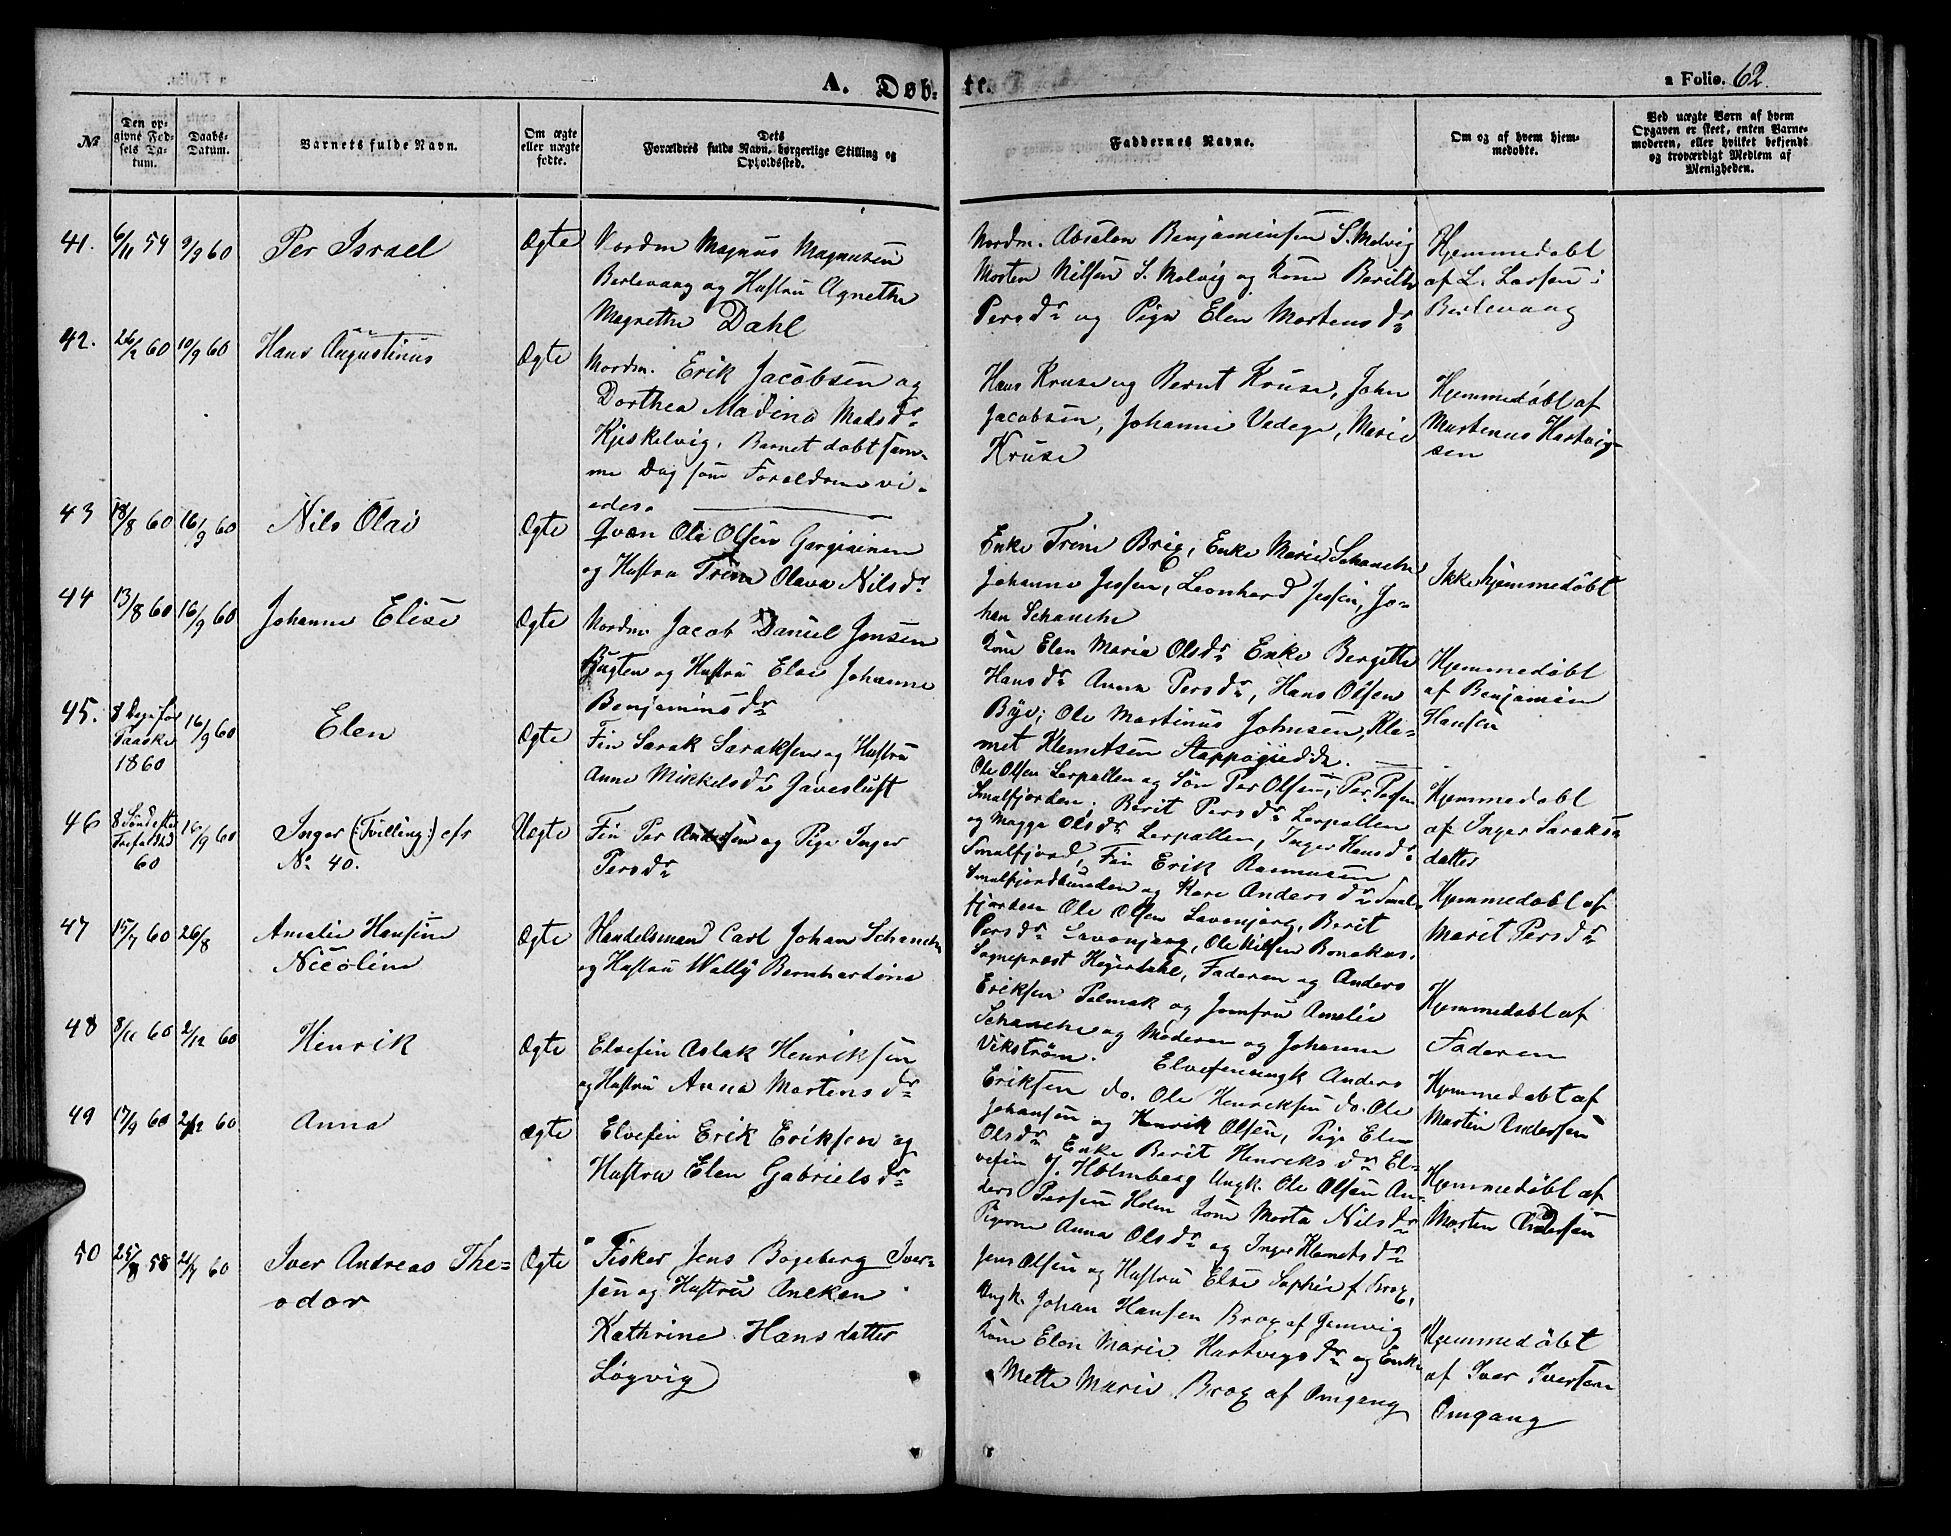 A. Døb-
te.
a Folio. 62.
№
Den op-
givne Fød-
sels Da-
tum.
Daabs-
Datum.
Barnets fulde Navn.
Om ægte
eller uægte
fødte.
Dets
Forældres fulde Navn, borgerlige Stilling og
Opholdssted.
Faddernes Navne.
Om og af hvem hjem-
medøbte.
Ved uægte Børn af hvem
Opgaven er skeet, enten Barne-
moderen, eller hvilket bekjendt
og troværdigt Medlem af
Menigheden.
41. 6/11 59 9/9 60 Per Israel Ægte
Nordm Magnus Magnusen
Berlevaag og Hustru Agnethe
Magrethe Dahl
Nordm. Absalon Benjaminsen S. Molvig
Morten Nilsen S. Molvig og Kone Berithe
Persdr og Pige Elen Mortensdr
Hjemmedøbt
af L. Larsen i
Berlevaag
42. 26/2 60 10/9 60 Hans Augustinus Ægte
Nordm. Erik Jacobsen og
Dorthea Madina Madsdr
Kjeskelvig. Barnet døbt sam-
me Dag som Forældrene vi-
edes.
Hans Kruse og Bernt Kruse, John
Jacobsen, Johanne Vedege, Marie
Kruse
Hjemmedøbt af
Martenus Hartvig-
sen
43 18/8 60 16/9 60 Nils Olai Ægte
Qvæn Ole Olsen Gargiainen
og Hustru Trine Olava Nilsdr
Enke Trine Brix, Enke Marie Schanche
Johanne Jessen, Leonhard Jessen, Jo-
han Schanche
Ikke hjemmedøbt
44 13/8 60 16/9 60 Johanne Elise Ægte
Nordm. Jacob Daniel Jensen
Bugten og Hustru Elen Johanne
Benjaminsdr
Kone Elen Maria Olsdr Enke Bergitte
Hansdr Anna Persdr, Hans Olsen
Bye; Ole Martinus Johnsen, Kle-
met Klemetsen Stappogiedde.
Hjemmedøbt
af Benjamin
Hansen
45. 8 Dage før
Paaske
1860
16/9 60 Elen Ægte
Fin Sarak Saraksen og Hustru
Anne Mikkelsdr Javesluft
Ole Olsen Lerpollen og Søn Per Olsen, Per Persen
Smalfjorden. Berit Persdr Lerpollen
og Magga Olsdr Lerpollen, Inger Hansdr
Hjemmedøbt
af Inger Saraks-
datter
46 8 Søndag e.
Trefoldhed
60
16/9 60 Inger (Tvilling) cfr
No 40. Uægte
Fin Per Andersen og Pige Inger
Persdr
Smalfjord, Fin Erik Rasmusen
Smalfjordbunden og Kare Andersdr Smal-
fjorden Ole Olsen Lavonjarg, Berit
Persdr Lavonjarg, Ole Nilsen Bonakas.
Hjemmedøbt af
Marit Persdr
47 15/7 60 26/8 Amalie Hansine
Nicoline Ægte
Handelsmand Carl Johan Schanche
og Hustru Wally Bernhardine
Sognepræst Høgerdahl, Faderen og Anders
Eriksen Polmak og Jomfru Amalie
Schanche og Moderen og Johanne
Vikstrøm.
Hjemmedøbt af
Faderen
48 8/11 60 2/12 60 Henrik Ægte
Elvefin Aslak Henriksen
og Hustru Anna Mortensdr
Elvefinungk Anders
Eriksen do. Ole Henriksen do. Ole
Johansen og Henrik Olsen, Pige Elen
Olsdr Enke Berit Henriksdr
Hjemmedøbt af
Martin Andersen
49 17/9 60 2/12 60 Anna Ægte
Elvefin Erik Eriksen og
Hustru Elen Gabrielsdr
El-
vefin J. Holmberg Ungk. Ole Olsen An-
ders Persen Holm Kone Marta Nilsdr
Pigerne Anna Olsdr og Inger Klemetsdr
Hjemmedøbt af
Morten Andersen
50 25/8 58 2/7 60 Iver Andreas The-
odor Ægte
Fisker Jens Bogeberg Iver-
sen og Hustru Aneken
Kathrine Hansdatter
Løgvig
Jens Olsen og Hustru Else Sophie f. Brox,
Ungk. Johan Hansen Brox af Gamvig
Kone Elen Marie Hartvigsdr og Enke
Mette Marie Brox af Omgang
Hjemmedøbt
af Iver Iversen
Omgang